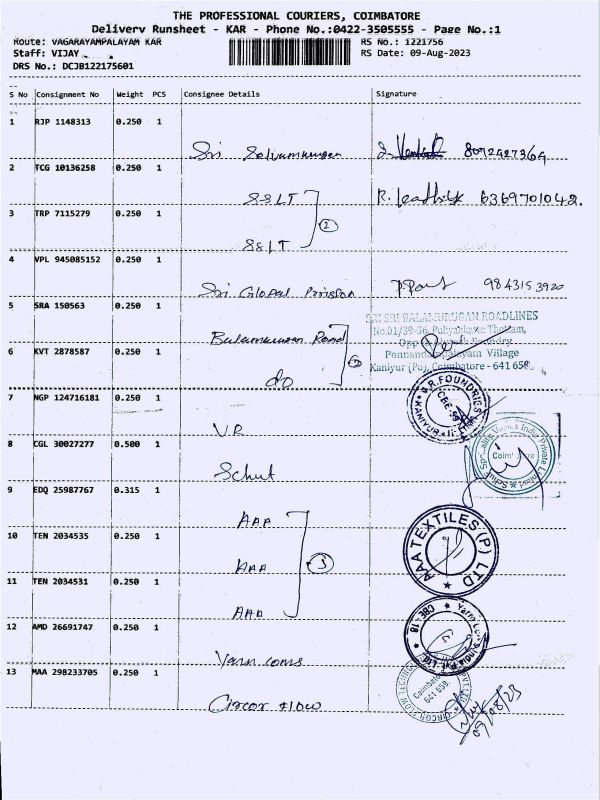 THE PROFESSIONAL COURIERS, COIMBATORE
Delivery Runsheet - KAR - Phone No.:0422-3505555 - Page No.:1
Route: VAGARAYAMPALAYAM KAR RS No.: 1221756
Staff: VIJAY RS Date: 09-Aug-2023
DRS No.: DCJB122175601
S No Consignment No Weight PCS Consignee Details Signature
1 RJP 1148313 0.250 1
Sri Selvamurugan 8092427364
2 TCG 10136258 0.250 1
SSLT R. 6369701042.
2
3 TRP 7115279 0.250 1
SSLT
4 VPL 945085152 0.250 1
Sri Global 9843153920
5 SRA 150563 0.250 1
SRI SRI BALAMURUGAN ROADLINES
No.01/39-36, Thottam,
Balamurugan Road
Opp Foundry
6 KVT 2878587 0.250 1
Village
Kaniyur (Po), Coimbatore - 641 659.
do
7 NGP 124716181 0.250 1
V.R. FOUNDRIES
KANIYUR
VR
8 CGL 30027277 0.500 1
India Private Limited
Schut
9 EDQ 25987767 0.315 1
AAA
10 TEN 2034535 0.250 1
AAA TEXTILES (P) LTD
AAA 3
11 TEN 2034531 0.250 1
AAA
12 AMD 26691747 0.250 1
CBE-18
Yarn coms
13 MAA 298233705 0.250 1
Coimbatore
641 659.
CIRCOR FLOW
Circor Flow
09/08/23